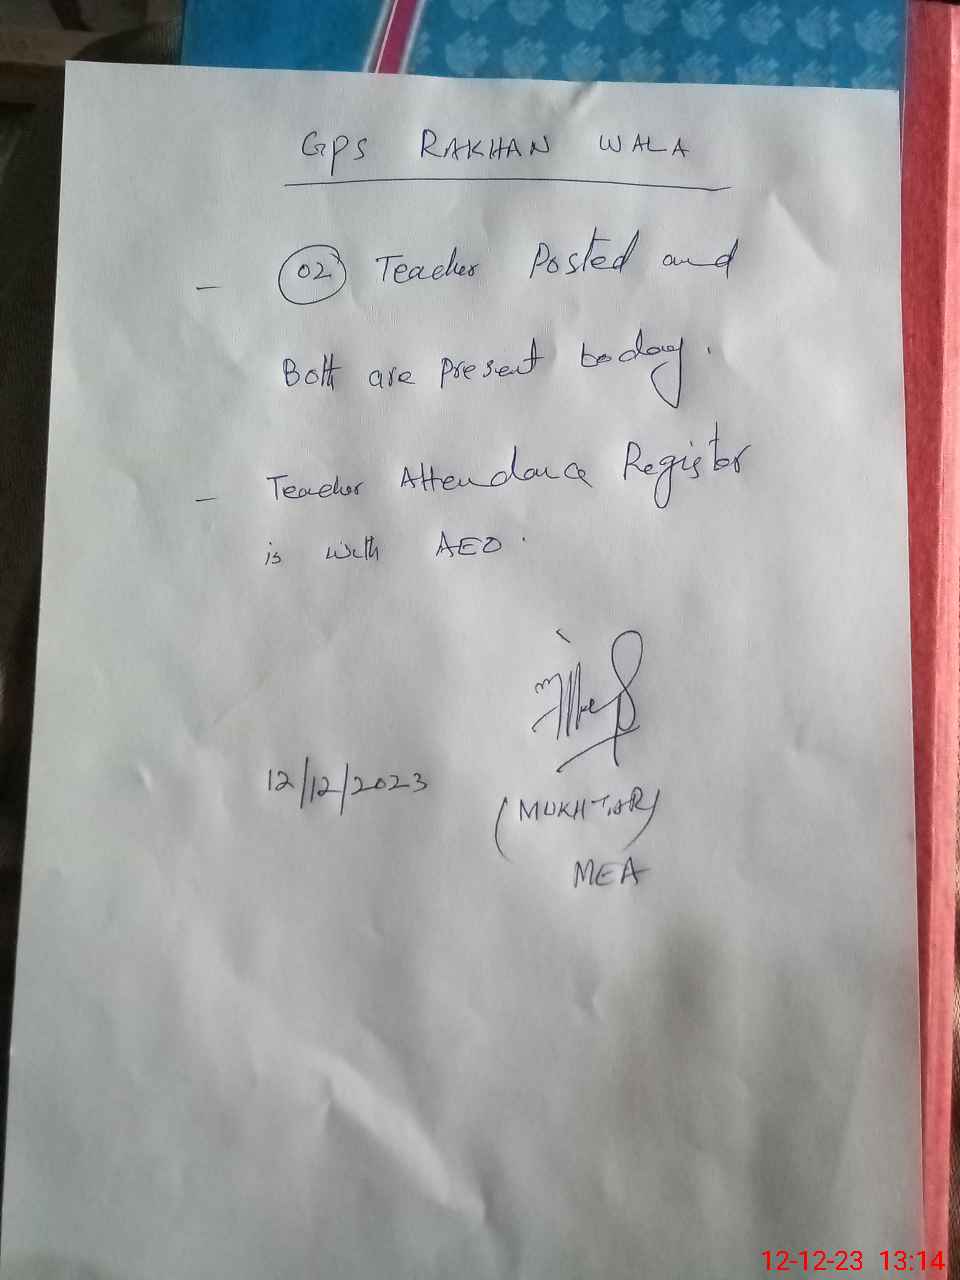 GPS RAKHAN WALA
- 02 Teacher Posted and
Both are present today.
- Teacher Attendance Register
is with AEO.
12/12/2023
(MUKHTAR)
MEA
12-12-23 13:14